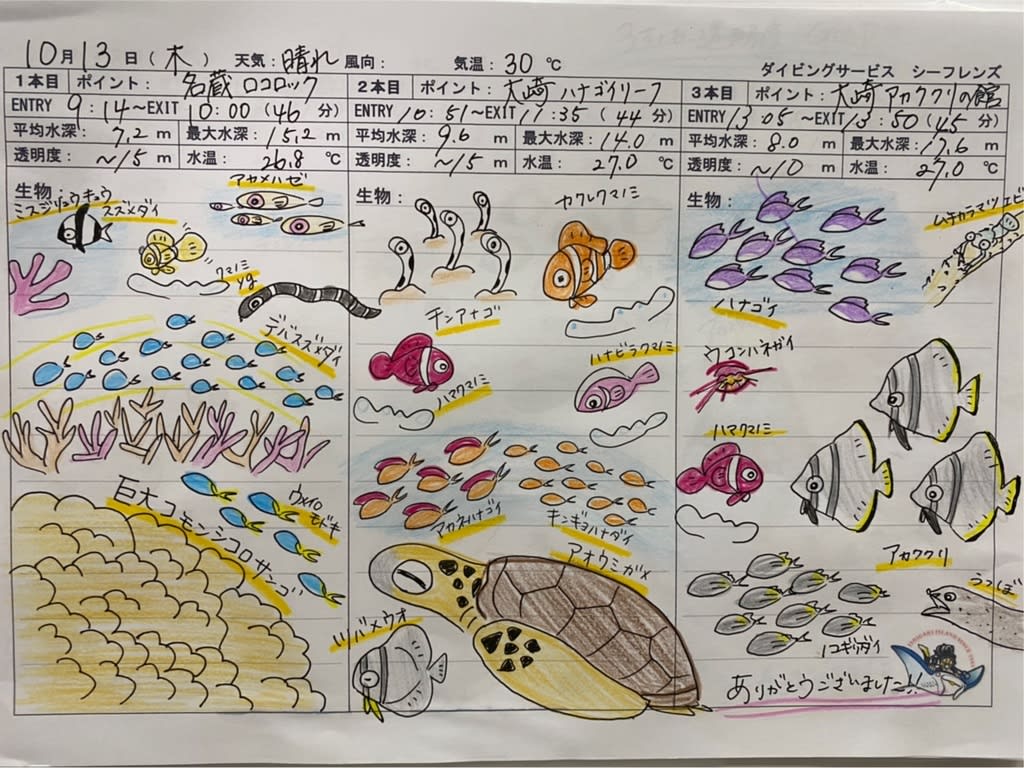 10月13日(木) 天気:晴れ 風向: 気温:30 ℃
ダイビングサービス シーフレンズ
1本目 ポイント: 名蔵 ロコロック
ENTRY 9:14~EXIT 10:00(46分)
平均水深: 7.2 m 最大水深: 15.2 m
透明度: ~15 m 水温: 26.8 ℃
生物:
ミスジリュウキュウ
スズメダイ
アカメハゼ
クマノミ
yg
デバスズメダイ
巨大コモンシコロサンゴ
ウメイロ
モドキ
2本目 ポイント: 大崎 ハナゴイリーフ
ENTRY 10:51~EXIT 11:35(44分)
平均水深: 9.6 m 最大水深: 14.0 m
透明度: ~15 m 水温: 27.0 ℃
生物:
カクレクマノミ
チンアナゴ
ハマクマノミ
ハナビラクマノミ
アカネハナゴイ
キンギョハナダイ
アオウミガメ
ツバメウオ
3本目 ポイント: 大崎 アカククリの館
ENTRY 13:05~EXIT 13:50(45分)
平均水深: 8.0 m 最大水深: 17.6 m
透明度: ~10 m 水温: 27.0 ℃
生物:
ムチカラマツエビ
ハナゴイ
ウコンハネガイ
ハマクマノミ
アカククリ
うつぼ
ノコギリダイ
ありがとうございました!!